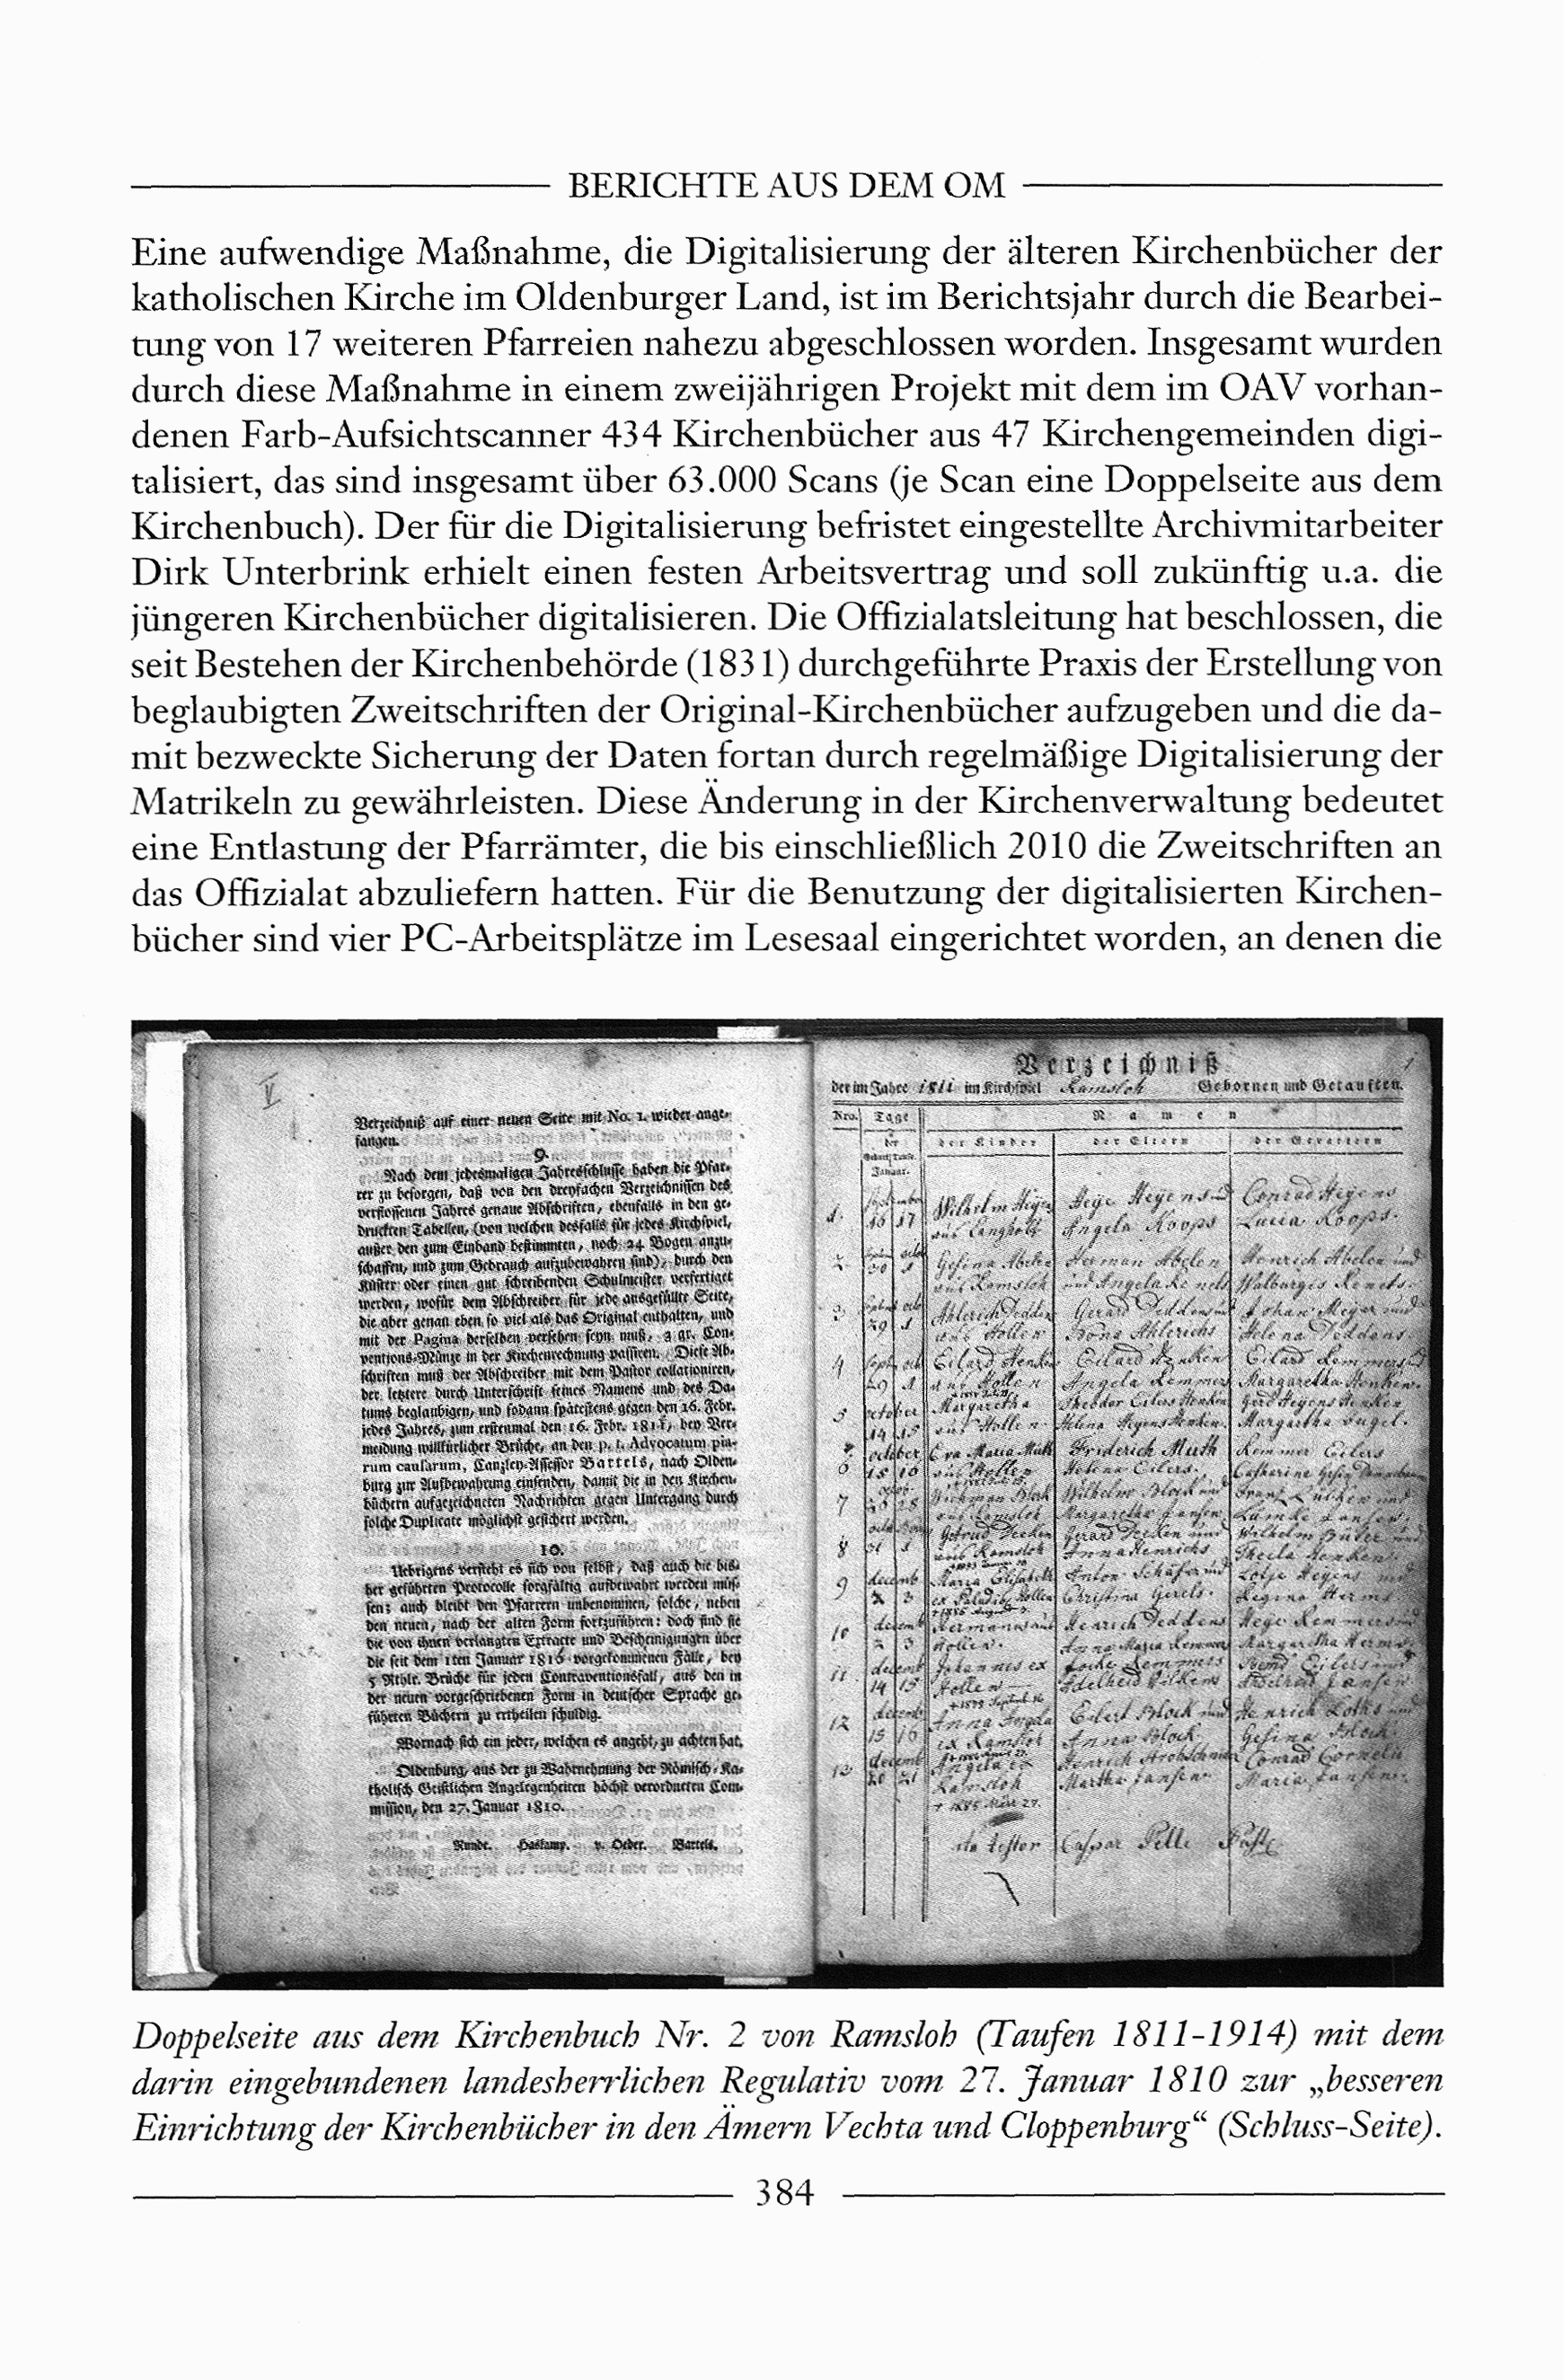 BERICHTE AUS DEM OM
Eine aufwendige Maßnahme, die Digitalisierung der älteren Kirchenbücher der
katholischen Kirche im Oldenburger Land, ist im Berichtsjahr durch die Bearbei-
tung von 17 weiteren Pfarreien nahezu abgeschlossen worden. Insgesamt wurden
durch diese Maßnahme in einem zweijährigen Projekt mit dem im OAV vorhan-
denen Farb-Aufsichtscanner 434 Kirchenbücher aus 47 Kirchengemeinden digi-
talisiert, das sind insgesamt über 63.000 Scans (je Scan eine Doppelseite aus dem
Kirchenbuch). Der für die Digitalisierung befristet eingestellte Archivmitarbeiter
Dirk Unterbrink erhielt einen festen Arbeitsvertrag und soll zukünftig u.a. die
jüngeren Kirchenbücher digitalisieren. Die Offizialatsleitung hat beschlossen, die
seit Bestehen der Kirchenbehörde (1831) durchgeführte Praxis der Erstellung von
beglaubigten Zweitschriften der Original-Kirchenbücher aufzugeben und die da-
mit bezweckte Sicherung der Daten fortan durch regelmäßige Digitalisierung der
Matrikeln zu gewährleisten. Diese Änderung in der Kirchenverwaltung bedeutet
eine Entlastung der Pfarrämter, die bis einschließlich 2010 die Zweitschriften an
das Offizialat abzuliefern hatten. Für die Benutzung der digitalisierten Kirchen-
bücher sind vier PC-Arbeitsplätze im Lesesaal eingerichtet worden, an denen die
V
Verzeichniß auf einer neuen Seite mit No. 1. wieder ange-
fangen.
9.
Nach dem jedesmaligen Jahresschlusse haben die Pfar-
rer zu besorgen, daß von den dreyfachen Verzeichnissen des
verflossenen Jahres genaue Abschriften, ebenfalls in den ge-
druckten Tabellen, (von welchen desfalls für jedes Kirchspiel,
außer den zum Einband bestimmten, noch 24 Bogen anzu-
schaffen, und zum Gebrauch aufzubewahren sind), durch den
Küster oder einen gut schreibenden Schulmeister verfertiget
werden, wofür dem Abschreiber für jede ausgefüllte Seite,
die aber genau eben so viel als das Original enthalten, und
mit der Pagina derselben versehen seyn muß, 2 gr. Con-
ventions-Münze in der Kirchenrechnung passiren. Diese Ab-
schriften muß der Abschreiber mit dem Pastor collationiren,
der letztere durch Unterschrift seines Namens und des Da-
tums beglaubigen, und sodann spätestens gegen den 16. Febr.
jedes Jahres, zum erstenmal den 16. Febr. 1811, bey Ver-
meidung willkürlicher Brüche, an den p. t. Advocatum pia-
rum causarum, Canzley-Assessor Bartels, nach Olden-
burg zur Aufbewahrung einsenden, damit die in den Kirchen-
büchern aufgezeichneten Nachrichten gegen Untergang durch
solche Duplicate möglichst gesichert werden.
10.
Uebrigens versteht es sich von selbst, daß auch die bis-
her geführten Protocolle sorgfältig aufbewahrt werden müs-
sen; auch bleibt den Pfarrern unbenommen, solche, neben
den neuen, nach der alten Form fortzuführen: doch sind sie
die von ihnen verlangten Extracte und Bescheinigungen über
die seit dem 1ten Januar 1810 vorgekommenen Fälle, bey
5 Rthlr. Brüche für jeden Contraventionsfall, aus den in
der neuen vorgeschriebenen Form in deutscher Sprache ge-
führten Büchern zu ertheilen schuldig.
Wornach sich ein jeder, welchen es angeht, zu achten hat.
Oldenburg, aus der zu Wahrnehmung der Römisch-Ka-
tholisch Geistlichen Angelegenheiten höchst verordneten Com-
mission, den 27. Januar 1810.
Runde. Haskamp. v. Oeder. Bartels.
Verzeichniß
der im Jahre 1811 im Kirchspiel Ramsloh Gebornen und Getauften.
Nro. Tage Namen
der der Kinder der Eltern der Gevattern
Januar.
1. September 16 17 Wilhelm Heyens Heye Heyens Conrad Heyens
aus Langholt Angela Koops Lucia Koops.
2 30 1 Gesina Abelen Herman Abelen Henrich Abelen und
aus Ramsloh
3 29 1 Gerard Deddens Johan Meyer und
aus Hollen Ahlerichs Helena Deddens
4 29 1 Eilard Henken Eilard Henken Eilard Remmers
aus Hollen Angela Remmers Margaretha Henken.
5 october 14 15 Margaretha
aus Hollen
6 october 15 16 Eva Maria Muth Friderich Muth Remmer Eilers
aus Hollen Helena Eilers.
7 28 Wilhelm Block und
aus Ramsloh Margaretha Jansen
8 31 1
aus Ramsloh Anna Henrichs
9 decemb 2 3 Maria Elisabeth Anton Schäfer und
Christina Gerels. Regina Herms.
10 decemb 2 3 Hermannus aus Henrich Deddens
Hollen. Anna Maria Remmers Margaretha Herms
11. decemb 14 15 Johannes ex
Hollen
12 decemb 15 16 Anna Angela Eilert Block und Henrich
ex Ramsloh Anna Block. Gesina Block.
13 decemb 20 21 Angela ex Conrad Cornelii
Ramsloh Martha Jansen. Maria Jansen.
ita testor Caspar
Doppelseite aus dem Kirchenbuch Nr. 2 von Ramsloh (Taufen 1811-1914) mit dem
darin eingebundenen landesherrlichen Regulativ vom 27. Januar 1810 zur „besseren
Einrichtung der Kirchenbücher in den Ämern Vechta und Cloppenburg“ (Schluss-Seite).
384